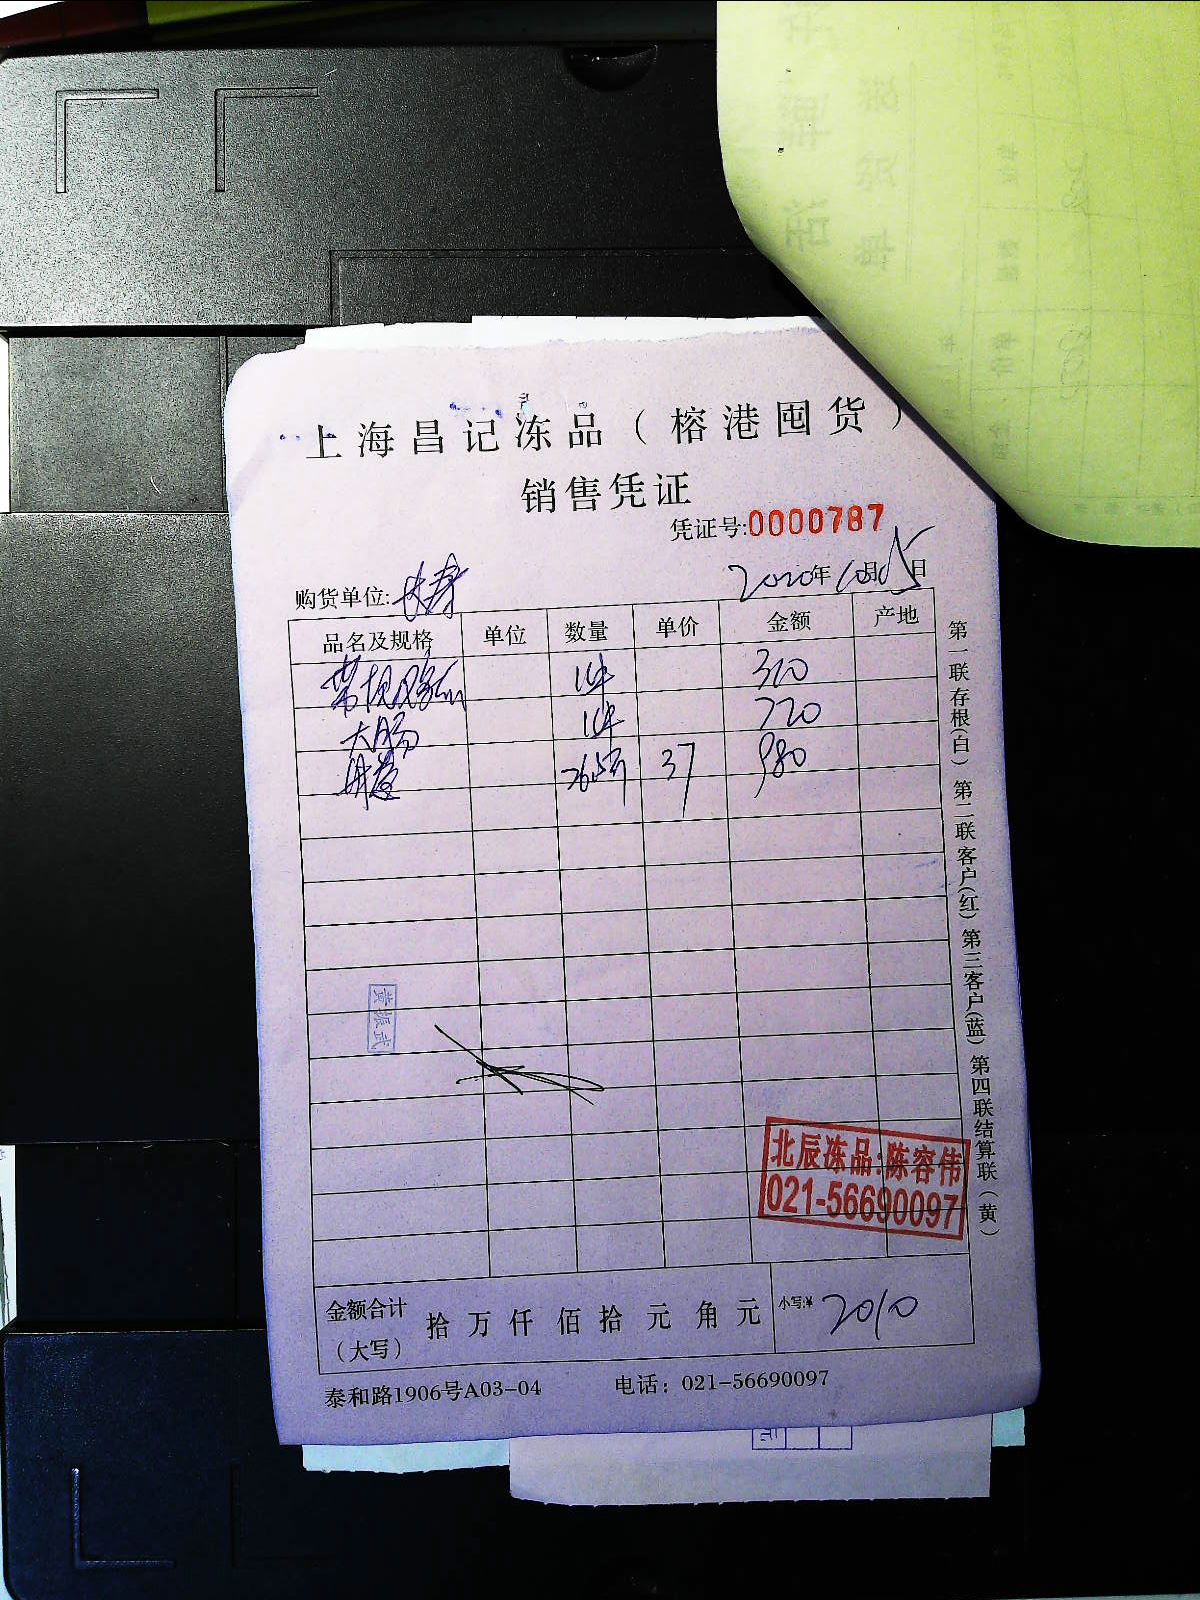 上海昌记冻品（榕港囤货）
销售凭证
凭证号:0000787
购货单位: 长寿 2020年10月15日
品名及规格 单位 数量 单价 金额 产地
1件 310
大肠 1件 720
26.5斤 37 980
黄振武
北辰冻品:陈容伟
021-56690097
金额合计（大写） 拾 万 仟 佰 拾 元 角 元 小写:¥ 2010
泰和路1906号A03-04 电话：021-56690097
第一联存根(白) 第二联客户(红) 第三客户(蓝) 第四联结算联（黄）